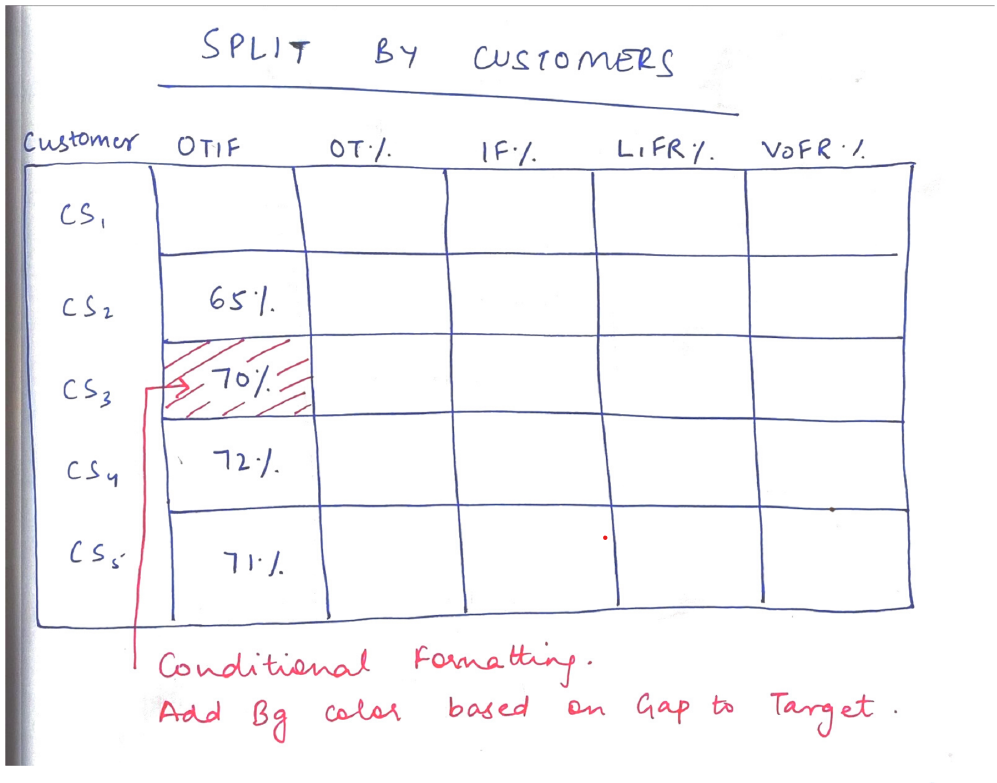 SPLIT BY CUSTOMERS
Customer OTIF OT% IF% LIFR% VOFR%
CS1
CS2 65%
CS3 70%
CS4 72%
CS5 71%
Conditional Formatting.
Add Bg color based on Gap to Target.